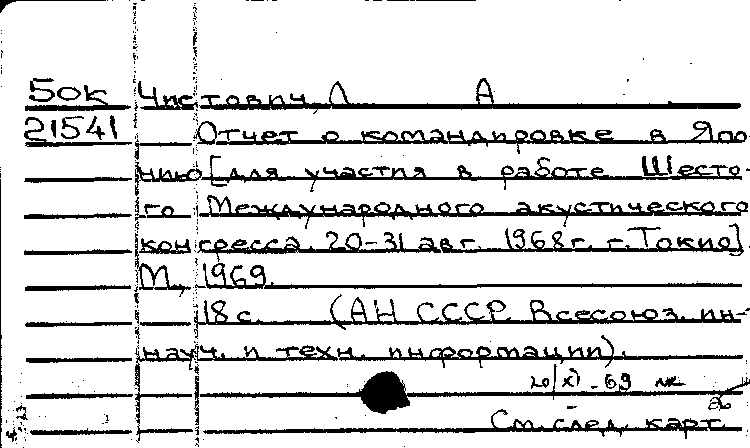 50к Чистович, Л А
21541 Отчет о командировке в Япо
нию [для участия в работе Шесто-
го Международного акустического
конгресса. 20-31 авг. 1968г. г. Токио].
М., 1969.
18 с. (АН СССР. Всесоюз. ин-т
науч. и техн. информации).
20/XI-69
См. след. карт.